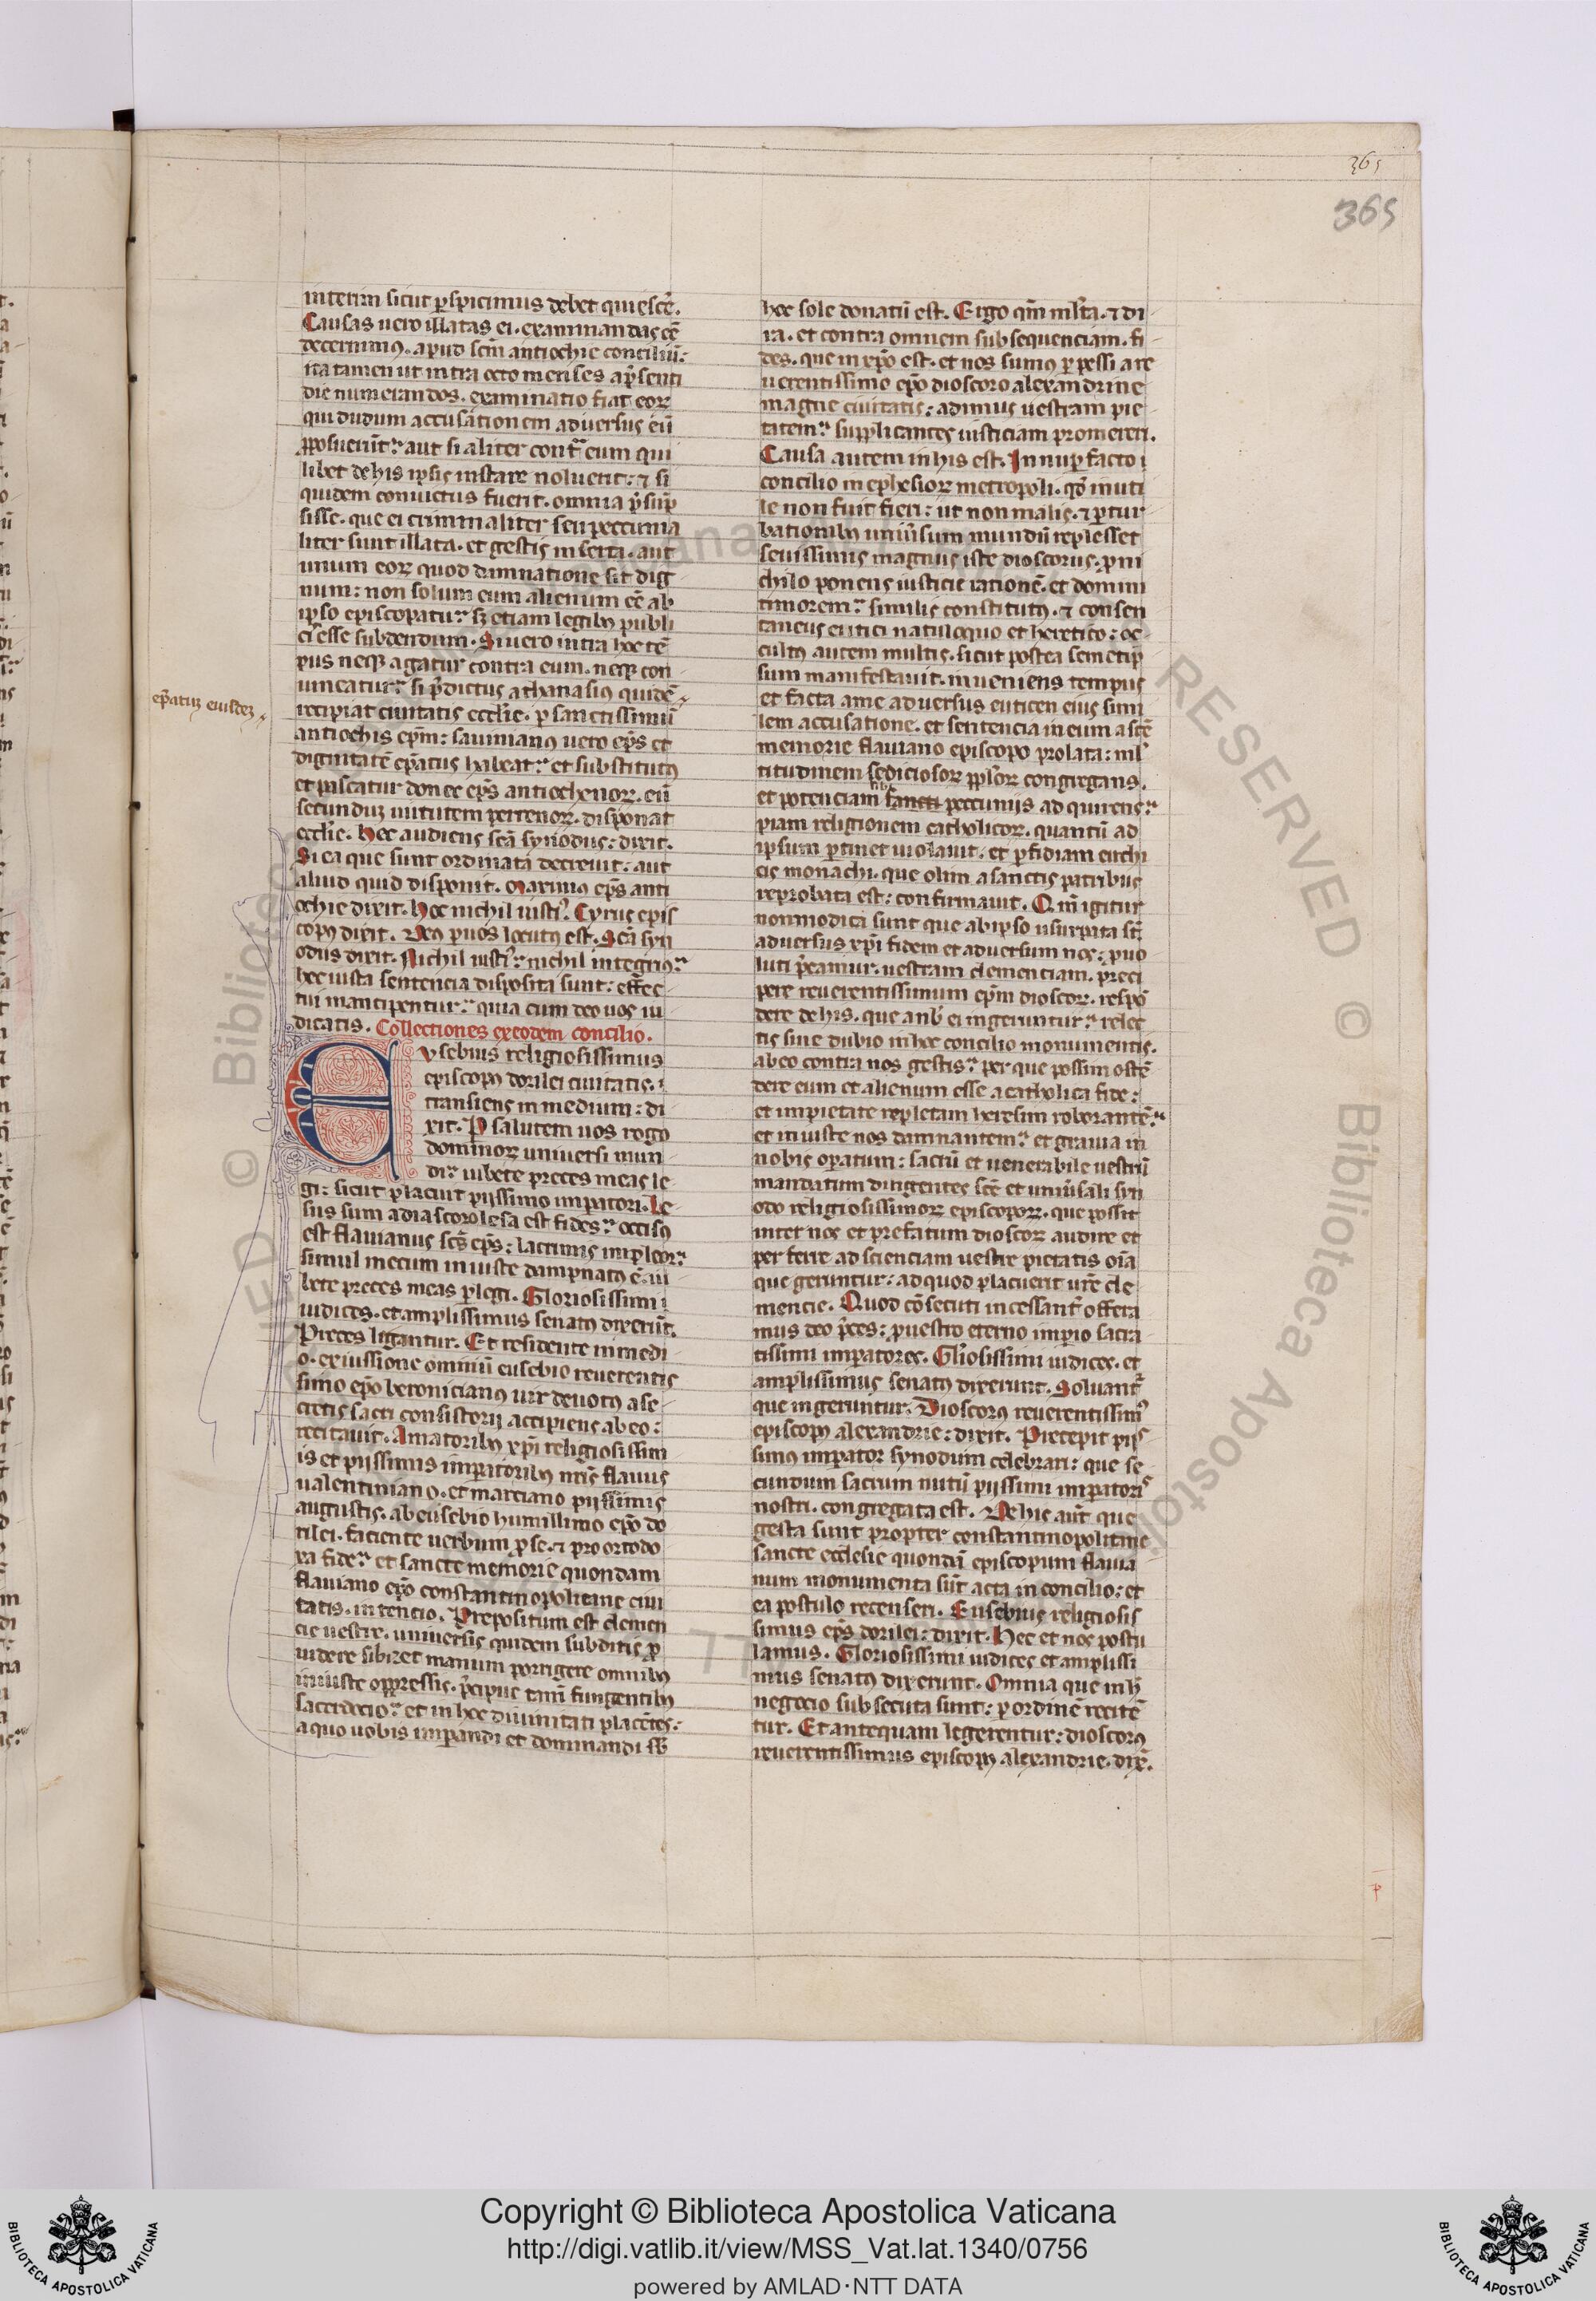 365
365
interim sicut ꝑspicimus debet quiescẽ.
Causas uero illatas ei. examinandas eẽ
decernimꝰ. apud scm̃ antiochie conciliũ:
ita tamen ut intra octo menses ap̃senti
die numerandos. examinatio fiat eoꝝ
qui dudum accusationem aduersus eũ
ꝓposuerũt: aut si aliter contᵃ eum qui
libet de his ipsis instare noluerit: ⁊ si
quidem conuictus fuerit. omnia p̃sup̃
sisse. que ei criminaliter seu peccunia
liter sunt illata. et gestis inserta. aut
unum eoꝝ quod dãnatione sit dig
num: non solum eum alienum eẽ ab
ipso episcopatu: sꝫ etiam legibꝰ publi
cis esse subdendum. Si uero intra hoc tẽ
pus neqꝫ agatur contra eum. neqꝫ con
uincatur: si p̃dictus athanasiꝰ quidẽ
ep̃atuꝫ eiusdeꝫ
recipiat ciuitatis eccl̃ie. ꝑ sanctissimũ
antiochis ep̃m: sauinianꝰ uero ep̃s et
dignitatẽ ep̃atus habeat: et substitutꝰ
et pascatur donec ep̃s antiochenoꝝ. eũ
secunduꝫ uirtutem perrenoꝝ. disponat
eccl̃ie. Hec audiens scã synodus: dixit.
Si ea que sunt ordinata decreuit: aut
aliud quid disponit. Maximꝰ ep̃s anti
ochie dixit. Hoc nichil iustiꝰ. Cyrus epis
copꝰ dixit. Deꝰ ꝑ uos locutꝰ est. Scã syn
odus dixit. Nichil iustiꝰ: nichil integriꝰ:
hec iusta sentencia disposita sunt: effec
tui mancipentur: quia cum deo uos iu
dicatis. Collectiones ex eodem concilio.
Eusebius religiosissimus
episcopꝰ dorilei ciuitatis.
transiens in medium: di
xit. P salutem uos rogo
dominoꝝ uniuersi mun
di: iubete preces meas le
gi: sicut placuit pijssimo imperatori. Le
sus sum a diascoro lesa est fides: occisꝰ
est flauianus scs̃ ep̃s: lacrimis impleor:
simul mecum iniuste dampnatꝰ ẽ. iu
bete preces meas ꝑlegi. Gloriosissimi
iudices. et amplissimus senatꝰ dixerũt.
Preces ligantur. Et residente in medi
o. ex iussione omniũ eusebio reuerentis
simo ep̃o beronicianꝰ uir deuotꝰ a se
cretis sacri consistorij accipiens ab eo:
recitauit. Amatoribꝰ xp̃i religiosissim
is et pijssimis imꝑatoribꝰ nr̃is flauus
ualentiniano. et marciano pijssimis
augustis. ab eusebio humillimo ep̃o do
rilei. faciente uerbum ꝓ se. ⁊ pro ortodo
xa fide: et sancte memorie quondam
flauiano ep̃o constantinopolitane ciui
tatis. intencio. Prepositum est clemen
cie uestre. uniuersis quidem subditis ꝓ
uidere sibi et manum porrigere omnibꝰ
iniuste oppressis. p̃cipue tam̃ fungentibꝰ
sacerdocio: et in hoc diuinitati placẽtes:
a quo uobis imꝑandi et dominandi sb̃
hoc sole donatũ est. Ergo qm̃ ml̃ta. ⁊ di
ra. et contra omnem subsequenciam. fi
des. que in xp̃o est. et nos sumꝰ ꝑpessi a re
uerentissimo ep̃o dioscoro alexandrine
magne ciuitatis: adimus uestram pie
tatem: supplicantes iusticiam promereri.
Causa autem in his est. In nuꝑ facto
concilio in ephesioꝝ metropoli. qð inuti
le non fuit fieri: ut non malis. ⁊ ꝑtur
bationibꝰ uniu̾sum mundũ replesset
seuissimis magnus iste dioscorus. ꝓ ni
chilo ponens iusticie rationẽ. et domini
timorem: similis constitutꝰ. ⁊ consen
taneus eutici natiloquo et heretico: oc
cultꝰ autem multis. sicut postea semetip̃
sum manifestauit. inueniens tempus
et facta a me aduersus euticen eius simi
lem accusatione. et sentencia in eum a scẽ
memorie flauiano episcopo prolata: ml̃
titudinem sediciosoꝝ ppl̃oꝝ congregans.
et potenciam sibi sancti peccunijs adquirens:
piam religionem catholicoꝝ. quantũ ad
ipsum ꝑtinet uiolauit. et ꝑfidiam euthi
cis monachi. que olim a sanctis patribus
reprobata est: confirmauit. Qm̃ igitur
non modica sunt que ab ipso usurpata st̃
aduersus xp̃i fidem et aduersum nos: ꝓuo
luti p̃camur. uestram clemenciam. preci
pere reuerentissimum ep̃m dioscoꝝ. respõ
dere de his. que a nob̃ ei ingeruntur: relec
tis siue dubio in hoc concilio monumentis.
ab eo contra nos gestis: per que possim ostẽ
dere eum et alienum esse a catholica fide:
et impietate repletam heresim roborantẽ:
et iniuste nos damnantem: et grauia in
nobis operatum: sacrũ et uenerabile uestrũ
mandatum dirigentes scẽ et uniu̾sali syn
odo religiosissimoꝝ episcopoꝝ. que possit
inter nos et prefatum dioscoꝝ audire et
per ferre ad scienciam uestre pietatis oĩa
que geruntur: ad quod placuerit ur̃e cle
mencie. Quod cõsecuti incessantᷣ offera
mus deo p̃ces: ꝓ uestro eterno imꝑio sacra
tissimi imꝑatores. Gl̃iosissimi iudices. et
amplissimus senatꝰ dixerunt. Soluantᷣ
que ingeruntur. Dioscorꝰ reuerentissimꝰ
episcopꝰ alexandrie: dixit. Precepit pijs
simꝰ imꝑator synodum celebrari: que se
cundum sacrum nutũ pijssimi imꝑatoris
nostri. congregata est. De his aut̃ que
gesta sunt propter constantinopolitane
sancte ecclesie quondã episcopum flauia
num monumenta sũt acta in concilio: et
ea postulo recenseri. Eusebius religiosis
simus ep̃s dorilei: dixit. Hec et nos postu
lamus. Gloriosissimi iudices et amplissi
mus senatꝰ dixerunt. Omnia que in h̾
negocio subsecuta sunt: ꝑ ordinẽ recitẽ
tur. Et antequam legerentur: dioscorꝰ
reuerentissimus episcopꝰ alexandrie. dix̃.
Copyright © Biblioteca Apostolica Vaticana
http://digi.vatlib.it/view/MSS_Vat.lat.1340/0756
powered by AMLAD·NTT DATA
BIBLIOTECA APOSTOLICA VATICANA
BIBLIOTECA APOSTOLICA VATICANA